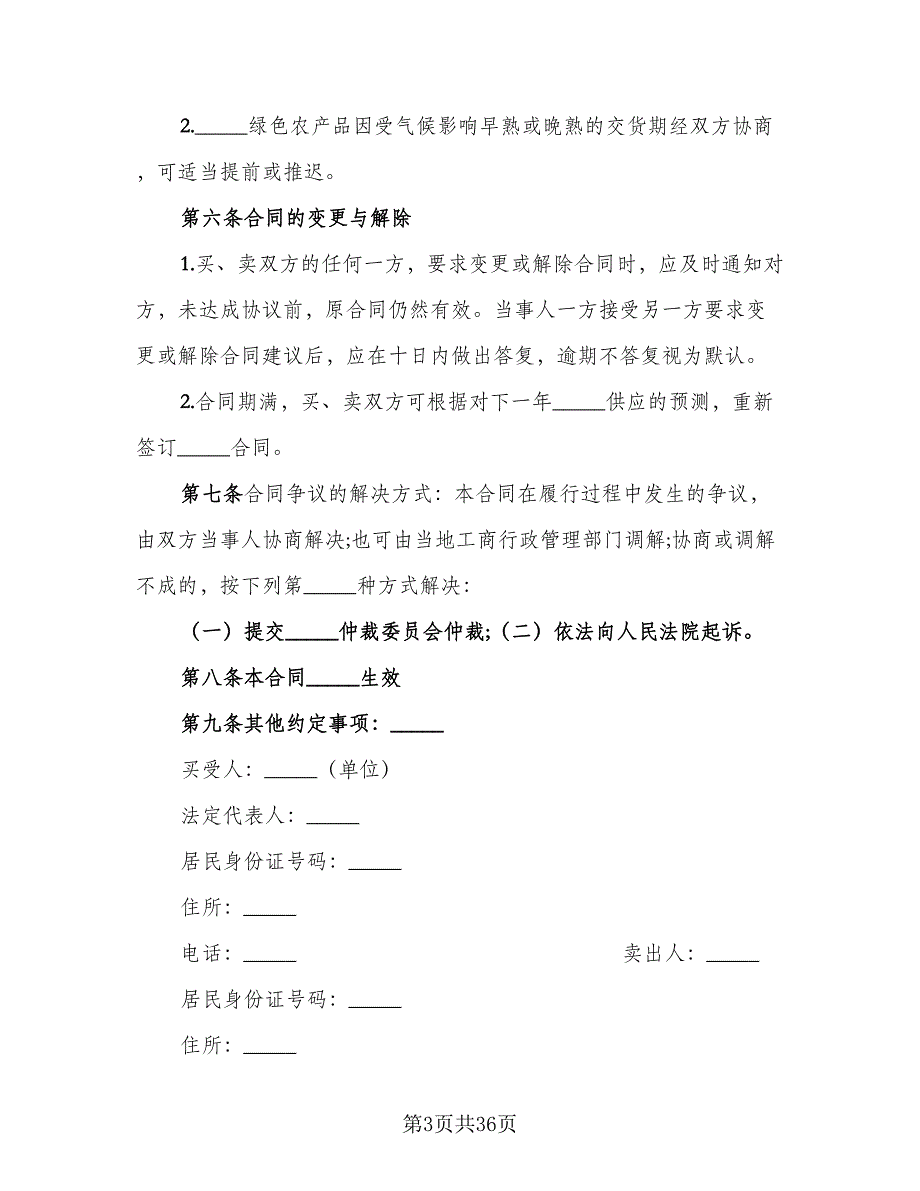 2._____绿色农产品因受气候影响早熟或晚熟的交货期经双方协商
，可适当提前或推迟。
第六条合同的变更与解除
1.买、卖双方的任何一方，要求变更或解除合同时，应及时通知对
方，未达成协议前，原合同仍然有效。当事人一方接受另一方要求变
更或解除合同建议后，应在十日内做出答复，逾期不答复视为默认。
2.合同期满，买、卖双方可根据对下一年_____供应的预测，重新
签订_____合同。
第七条合同争议的解决方式：本合同在履行过程中发生的争议，
由双方当事人协商解决;也可由当地工商行政管理部门调解;协商或调解
不成的，按下列第_____种方式解决：
（一）提交_____仲裁委员会仲裁;（二）依法向人民法院起诉。
第八条本合同_____生效
第九条其他约定事项：_____
买受人：_____（单位）
法定代表人：_____
居民身份证号码：_____
住所：_____
电话：_____ 卖出人：_____
居民身份证号码：_____
住所：_____
第3页共36页